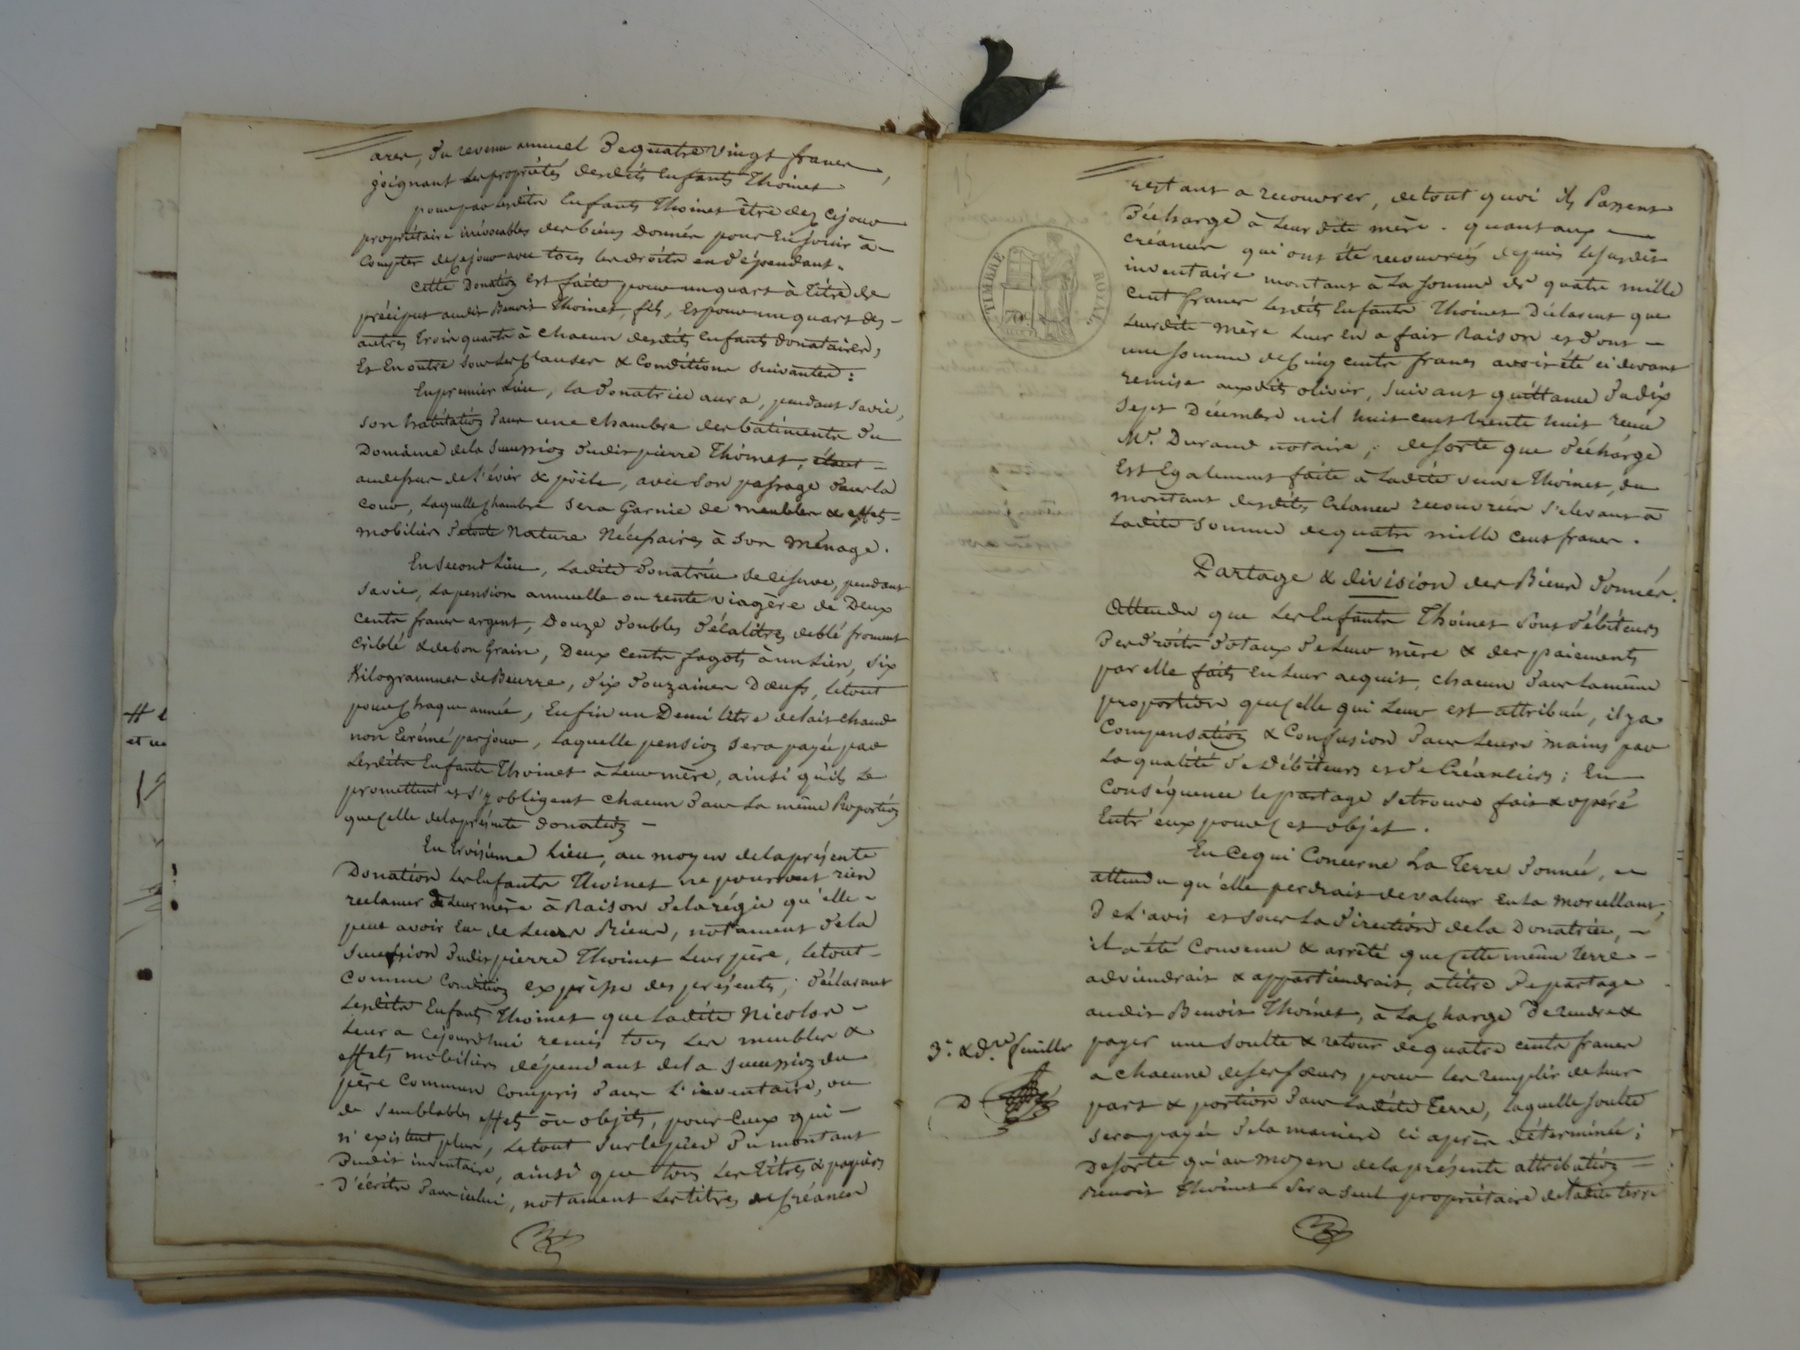 ares, du revenu annuel de quatre vingt francs,
joignant les propriétés desdits Enfants Thoinet
pour par lesdits Enfants Thoinet être dez cejour
propriétaire irrévocables des biens donnés pour En jouir à
Compter de cejour avec tous les droits en dépendant.
Cette Donation est faite pour un quart à titre de
préciput audit Benoit Thoinet fils, Et pour un quart des
autres trois quarts à chacun desdits Enfants donataires,
Et En outre sous les Clauses & Conditions suivantes :
En premier Lieu, la donatrice aura, pendant sa vie,
son habitation dans une chambre des batiments du
Domaine de la Succession dudit pierre Thoinet,
au dessus de l'évier & poële, avec son passage dans la
cour, Laquelle Chambre sera Garnie de meubles & effets
mobiliers de toute Nature Nécessaires à son ménage.
En second Lieu, Ladite donatrice se réserve, pendant
sa vie, La pension annuelle ou rente viagère de Deux
cents francs argent, Douze doubles décalitres de blé froment
criblé & de bon Grain, Deux Cents fagots à un Lien, six
Kilogrammes de Beurre, dix douzaines D'œufs, le tout
pour Chaque année, Enfin un Demi litre de lait chaud
non Ecrémé par jour, Laquelle pension sera payée par
Lesdits Enfants Thoinet à Leur mère, ainsi qu'ils Le
promettent et s'y obligent chacun dans La même Proportion
que Celle de la présente donation
En troisième Lieu, au moyen de la présente
Donation Les Enfants Thoinet ne pourront rien
reclamer de Leur mère à Raison de la régie qu'elle
peut avoir Eue de Leurs Biens, notament de la
Succession dudit pierre Thoinet Leur père, Le tout
comme Condition expresse des présentes ; déclarant
Lesdits Enfants Thoinet que Ladite Nicolas
Leur a cejourdhui remis tous Les meubles &
effets mobiliers dépendant de la Succession du
père Commun Compris dans L'inventaire, ou
de semblables effets ou objets, pour Ceux qui
n'existent plus, Le tout sur le pied du montant
dudit inventaire, ainsi que tous Les titres & papiers
D'écrits dans icelui, notament Les titres de Créances
restant a recouvrer, de tout quoi ils Passent
Décharge à Leur dite mère. quant aux
créances qui ont été recouvrées depuis Le susdit
inventaire montant à La somme de quatre mille
Cent francs Lesdits Enfants Thoinet Déclarent que
Leur dite mère Leur En a fait Raison et dont
une somme de Cinq Cents francs avoir été ci devant
remise auxdits olivier, suivant quittance du dix
sept Décembre mil huit cent trente huit reçue
Mr. Durand notaire ; de sorte que décharge
Est Egalement faite à Ladite veuve Thoinet, du
montant desdites Créances recouvrées s'élevant à
Ladite somme de quatre mille cent francs.
Partage & division des Biens donnés.
Attendu que Les Enfants Thoinet sont débiteurs
Des droits dotaux de Leur mère & des paiements
par elle faits En Leur acquit, chacun dans La même
proportion que Celle qui Leur est attribuée, il y a
Compensation & Confusion dans Leurs mains par
La qualité de Débiteurs et de Créanciers ; En
Conséquence le partage se trouve fait & opéré
Entr'eux pour Cet objet.
En Ce qui Concerne La Terre donnée,
attendu qu'elle perdrait de valeur En La morcellant,
De L'avis et sous La direction de la Donatrice,
il a été Convenu & arrêté que Cette même terre
adviendrait & appartiendrait, a titre De partage
audit Benoit Thoinet, à La Charge De rendre &
3.e & d.re feuille
payer une soulte & retour de quatre cents francs
a chacune de ses sœurs pour Les remplir de Leur
D
part & portion dans Ladite terre, Laquelle soulte
sera payée de la maniere ci après déterminée ;
De sorte qu'au moyen de la présente attribution
Benoit Thoinet sera seul propriétaire de Ladite terre
TIMBRE ROYAL